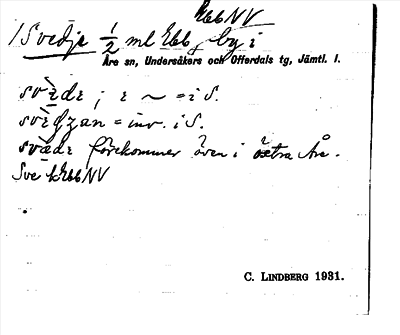 kEbbNV
1 Svedje 1/2 ml Ebb, by i
Åre sn, Undersåkers och Offerdals tg, Jämtl. l.
= i S.
= inv. i S.
förekommer även i östra Åre.
Sve kEbbNV
C. LINDBERG 1931.